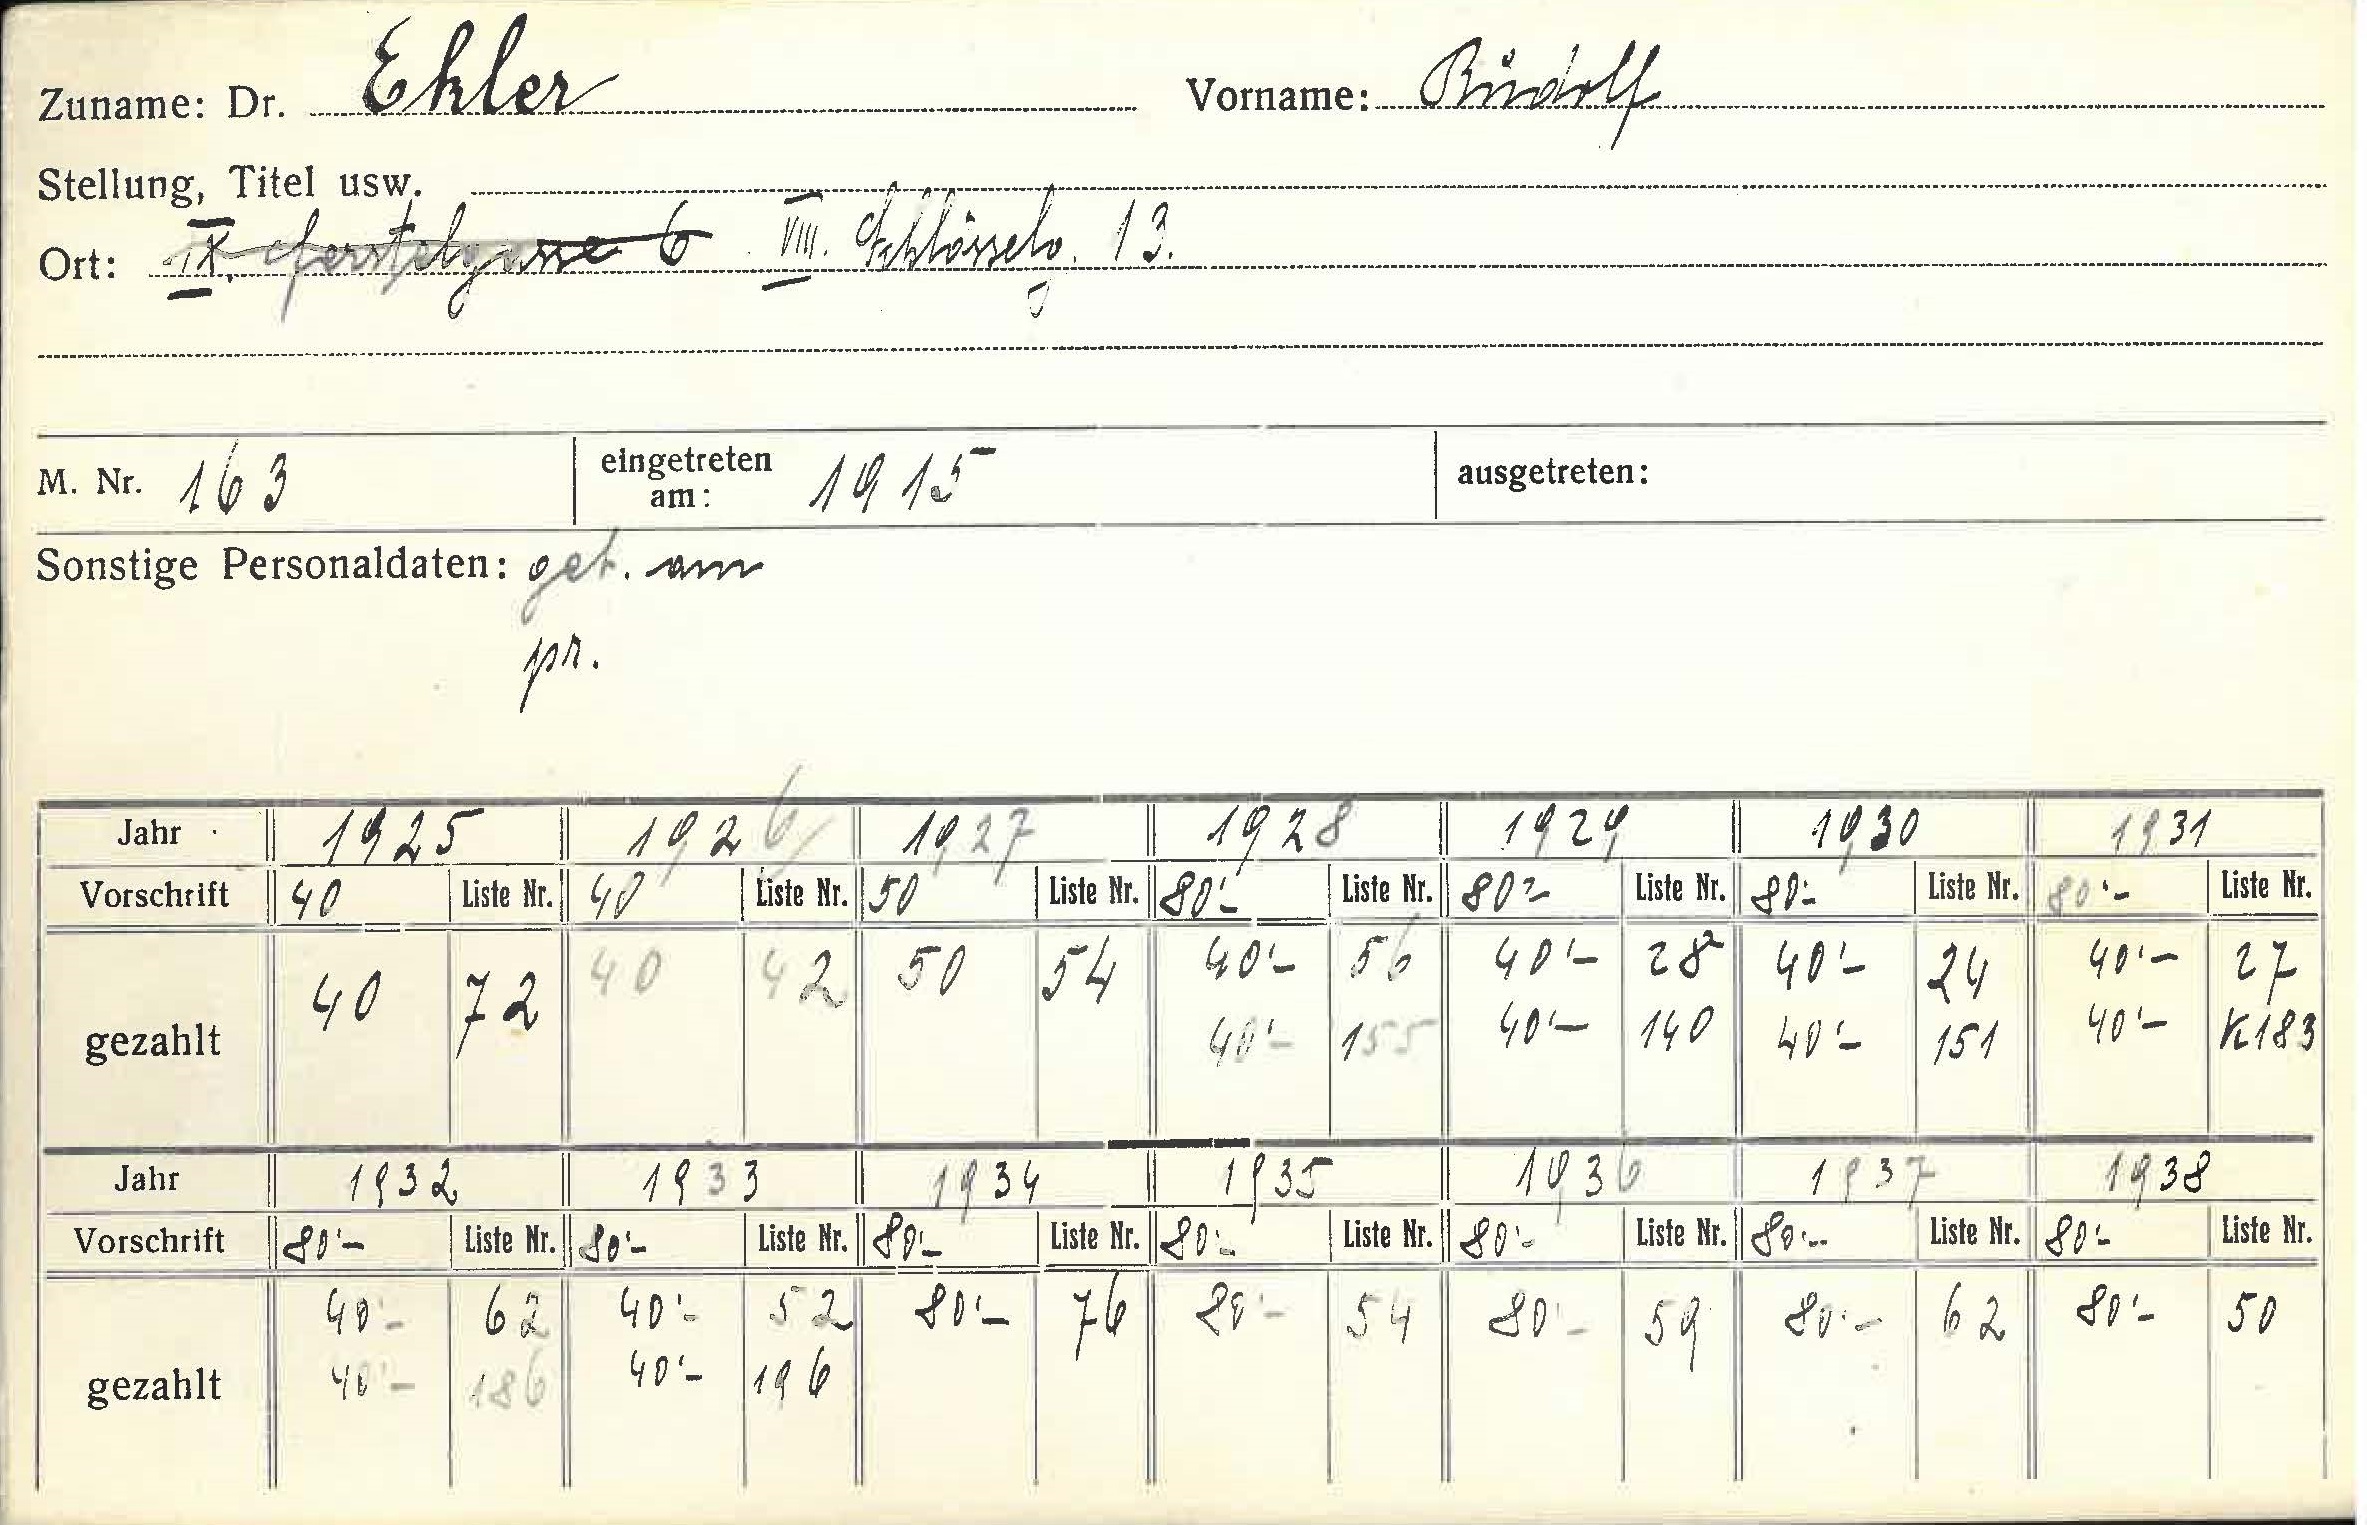 Zuname: Dr. Ekler Vorname: Rudolf
Stellung, Titel usw.
Ort: IX. Ferstelgasse 6 VIII. Schlösselg. 13.
M. Nr. 163 eingetreten am: 1915 ausgetreten:
Sonstige Personaldaten: geb. am
pr.
Jahr 1925 1926 1927 1928 1929 1930 1931
Vorschrift 40 Liste Nr. 40 Liste Nr. 50 Liste Nr. 80'- Liste Nr. 80'- Liste Nr. 80'- Liste Nr. 80'- Liste Nr.
gezahlt 40 72 40 42 50 54 40'- 56 40'- 28 40'- 24 40'- 27
40'- 155 40'- 140 40'- 151 40'- K183
Jahr 1932 1933 1934 1935 1936 1937 1938
Vorschrift 80'- Liste Nr. 80'- Liste Nr. 80'- Liste Nr. 80'- Liste Nr. 80'- Liste Nr. 80'- Liste Nr. 80'- Liste Nr.
gezahlt 40'- 62 40'- 52 80'- 76 80'- 54 80'- 59 80'- 62 80'- 50
40'- 186 40'- 196